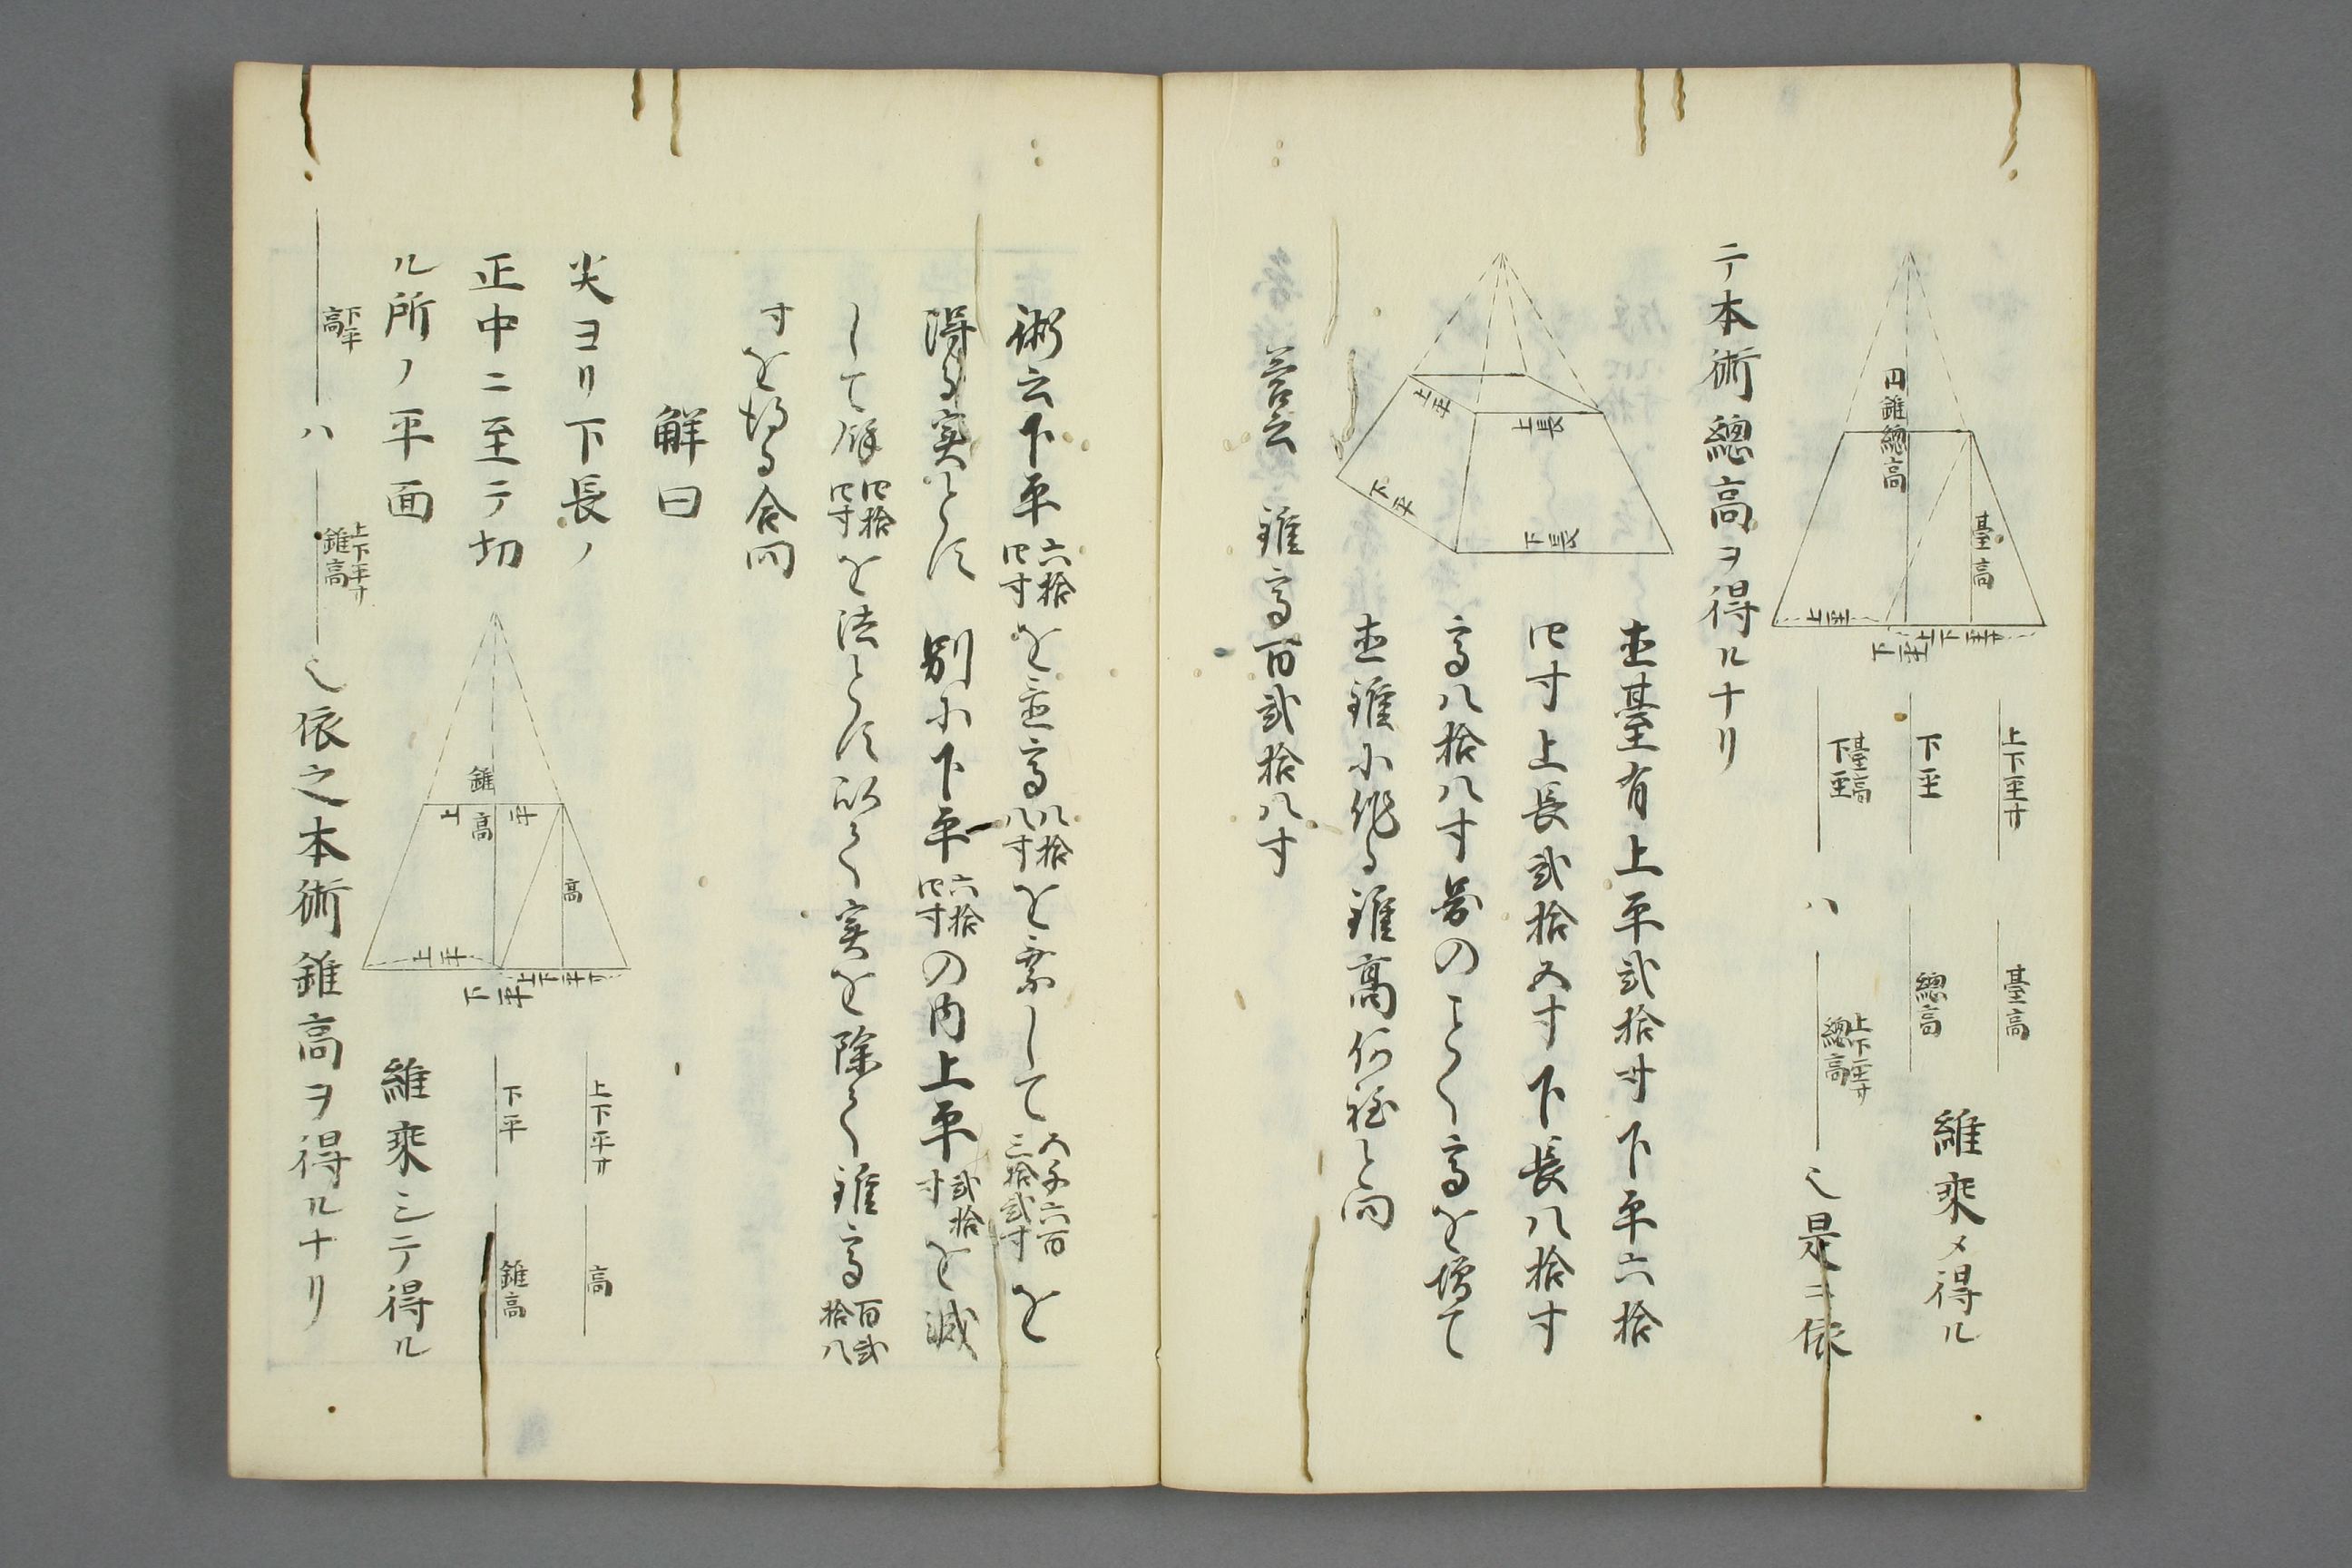 円錐總高
臺高
上𦤶
下𦤶
上下𦤶寸
上下𦤶寸
臺高
下𦤶
總高
維乘メ得ル
臺高
下𦤶
ハ
上下𦤶寸
總高
也是ニ依
テ本術總高ヲ得ルナリ
上平
上長
下平
下長
直臺有上平弐拾寸下平六拾
四寸上長弐拾五寸下長八拾寸
高八拾八寸図のことく高を増て
直錐に作る錐高何程と問
答云 錐高百弐拾八寸
術云下平六拾四寸を置高八拾八寸を乗して五千六百三拾弐寸を
得る実とす 別に下平六拾四寸の内上平弐拾寸を減
して餘四拾四寸を法とす以て実を除て錐高百弐拾八
寸を得る合問
解曰
尖ヨリ下長ノ
正中ニ至テ切
ル所ノ平面
錐高
上平
高
上平
下平
上下平寸
上下平寸
高
下平
錐高
維乘シテ得ル
下平
高
ハ
上下平寸
錐高
也依之本術錐高ヲ得ルナリ